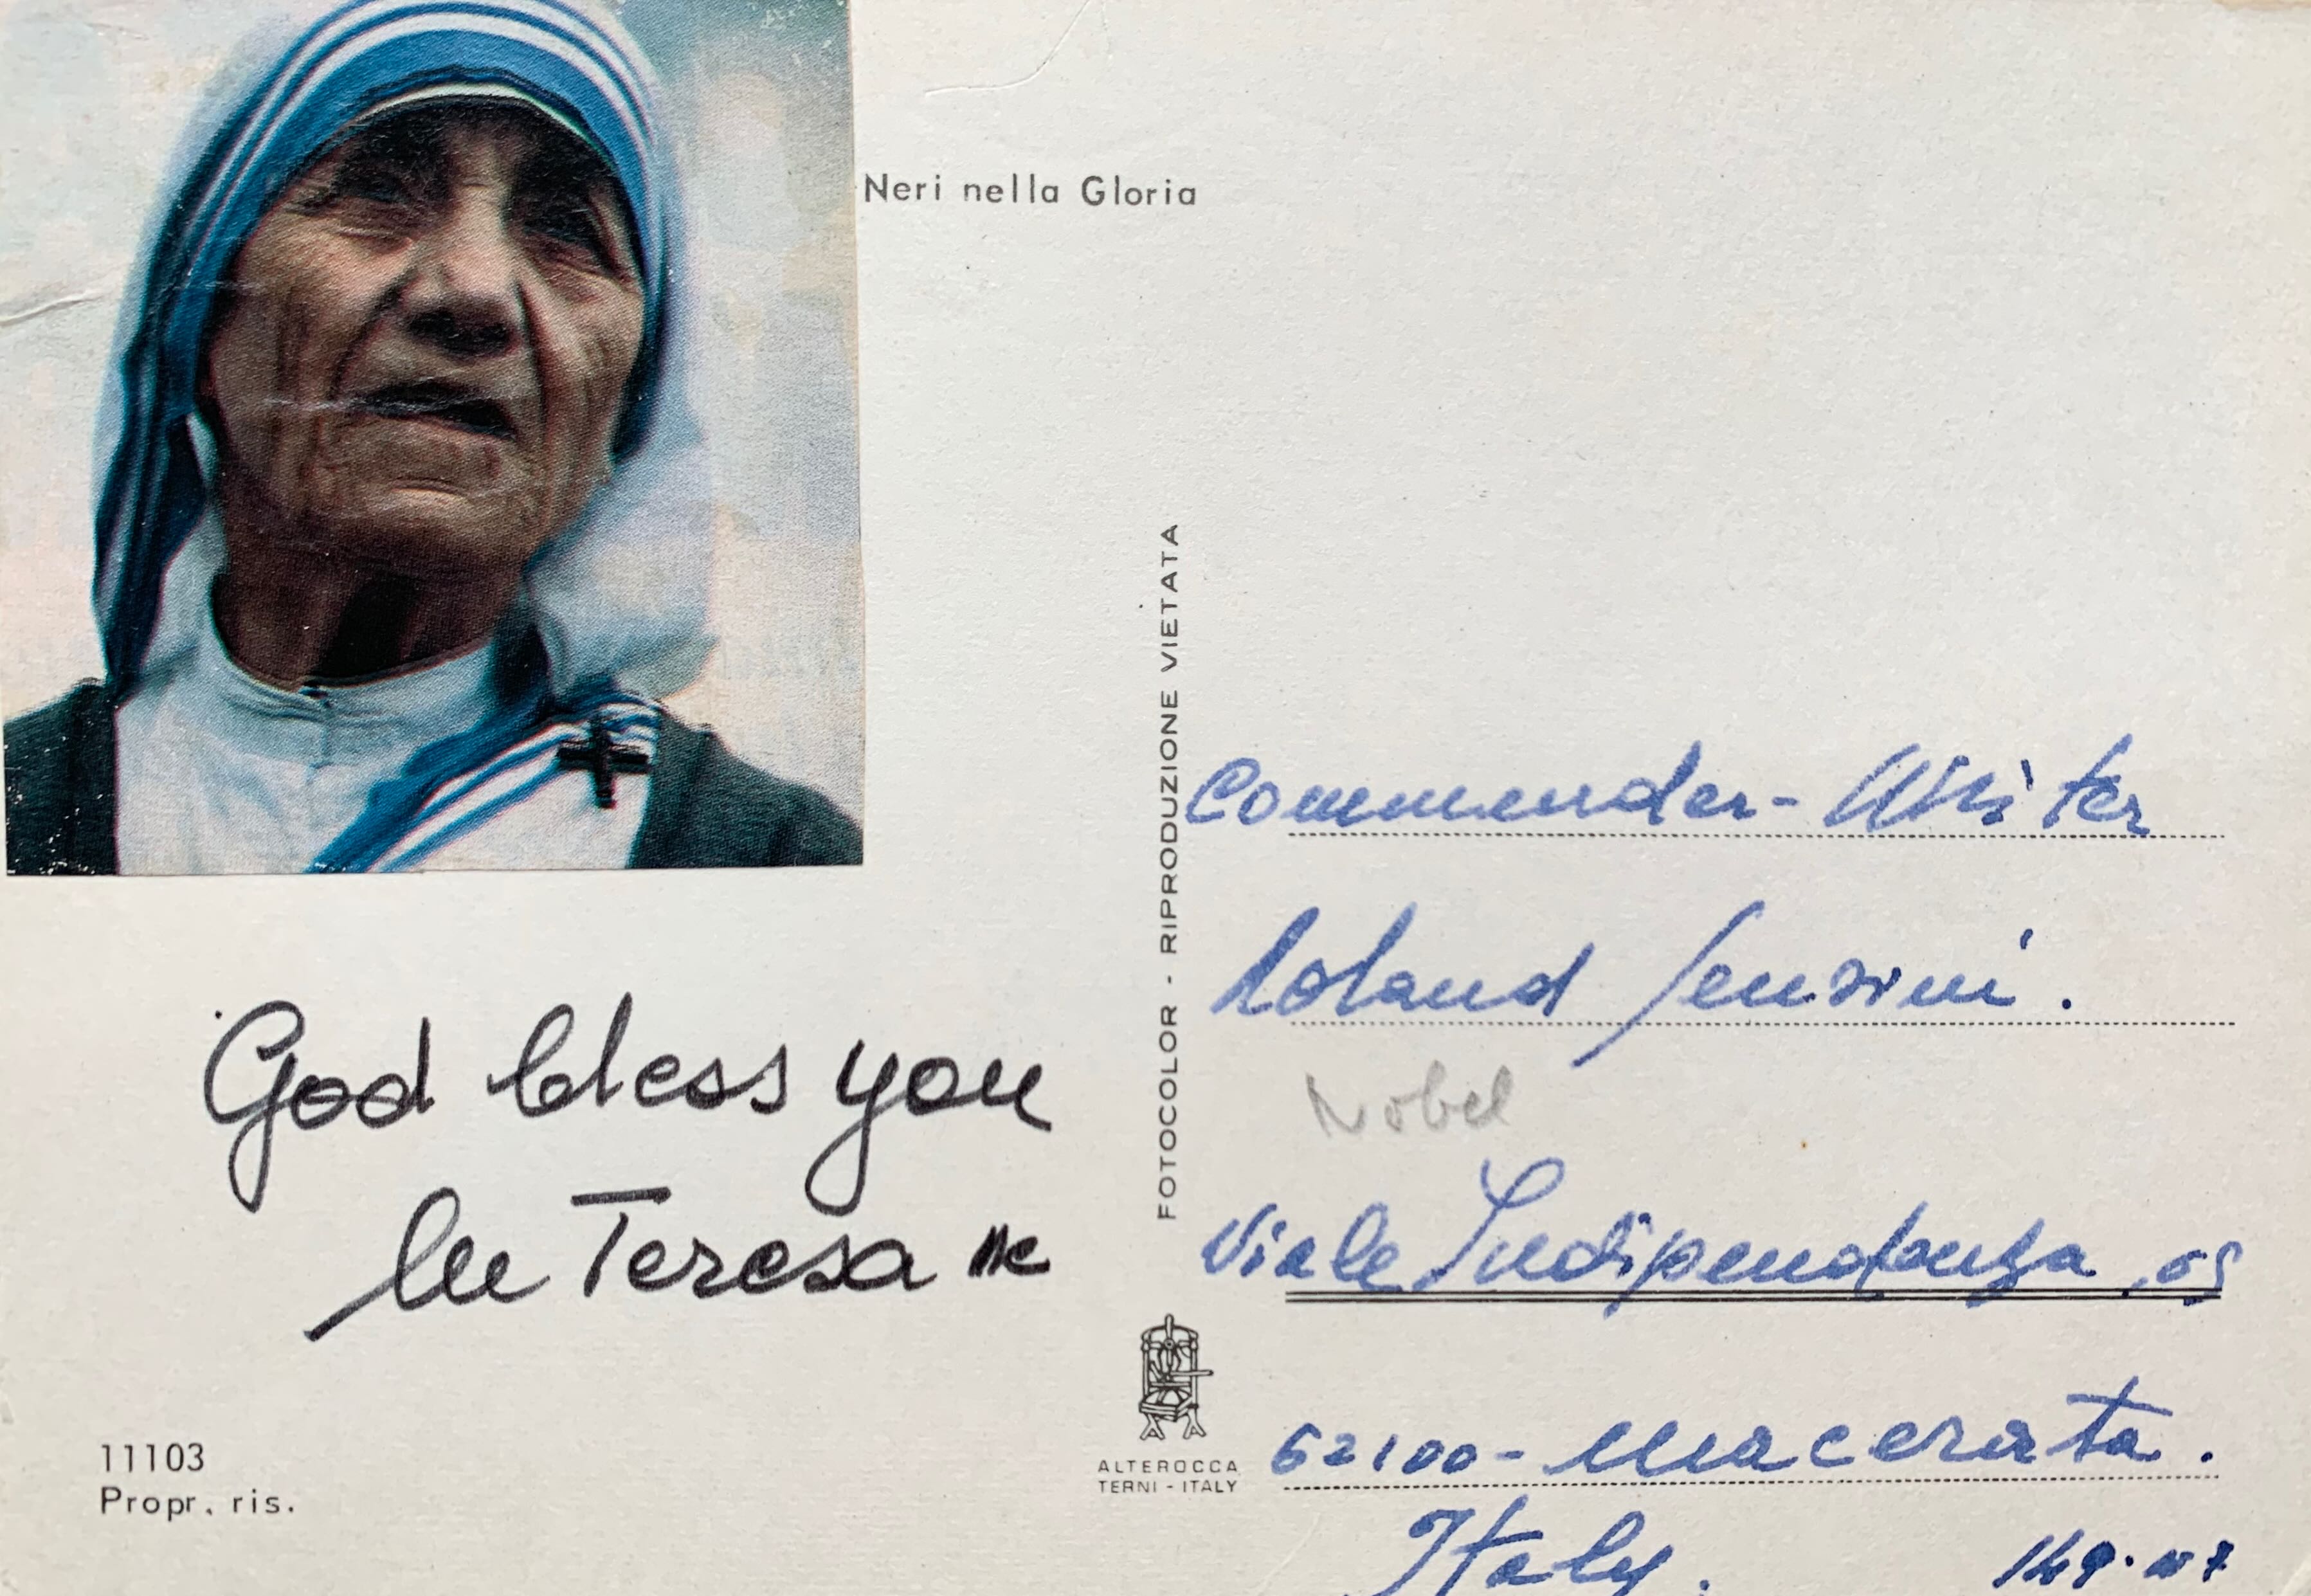 Neri nella Gloria
God bless you
lle Teresa mc
11103
Propr. ris.
FOTOCOLOR - RIPRODUZIONE VIETATA
ALTEROCCA
TERNI - ITALY
Commender - Mister
Roland Sensini.
Nobel
Viale Indipendenza,
62100 - Macerata.
Italy.